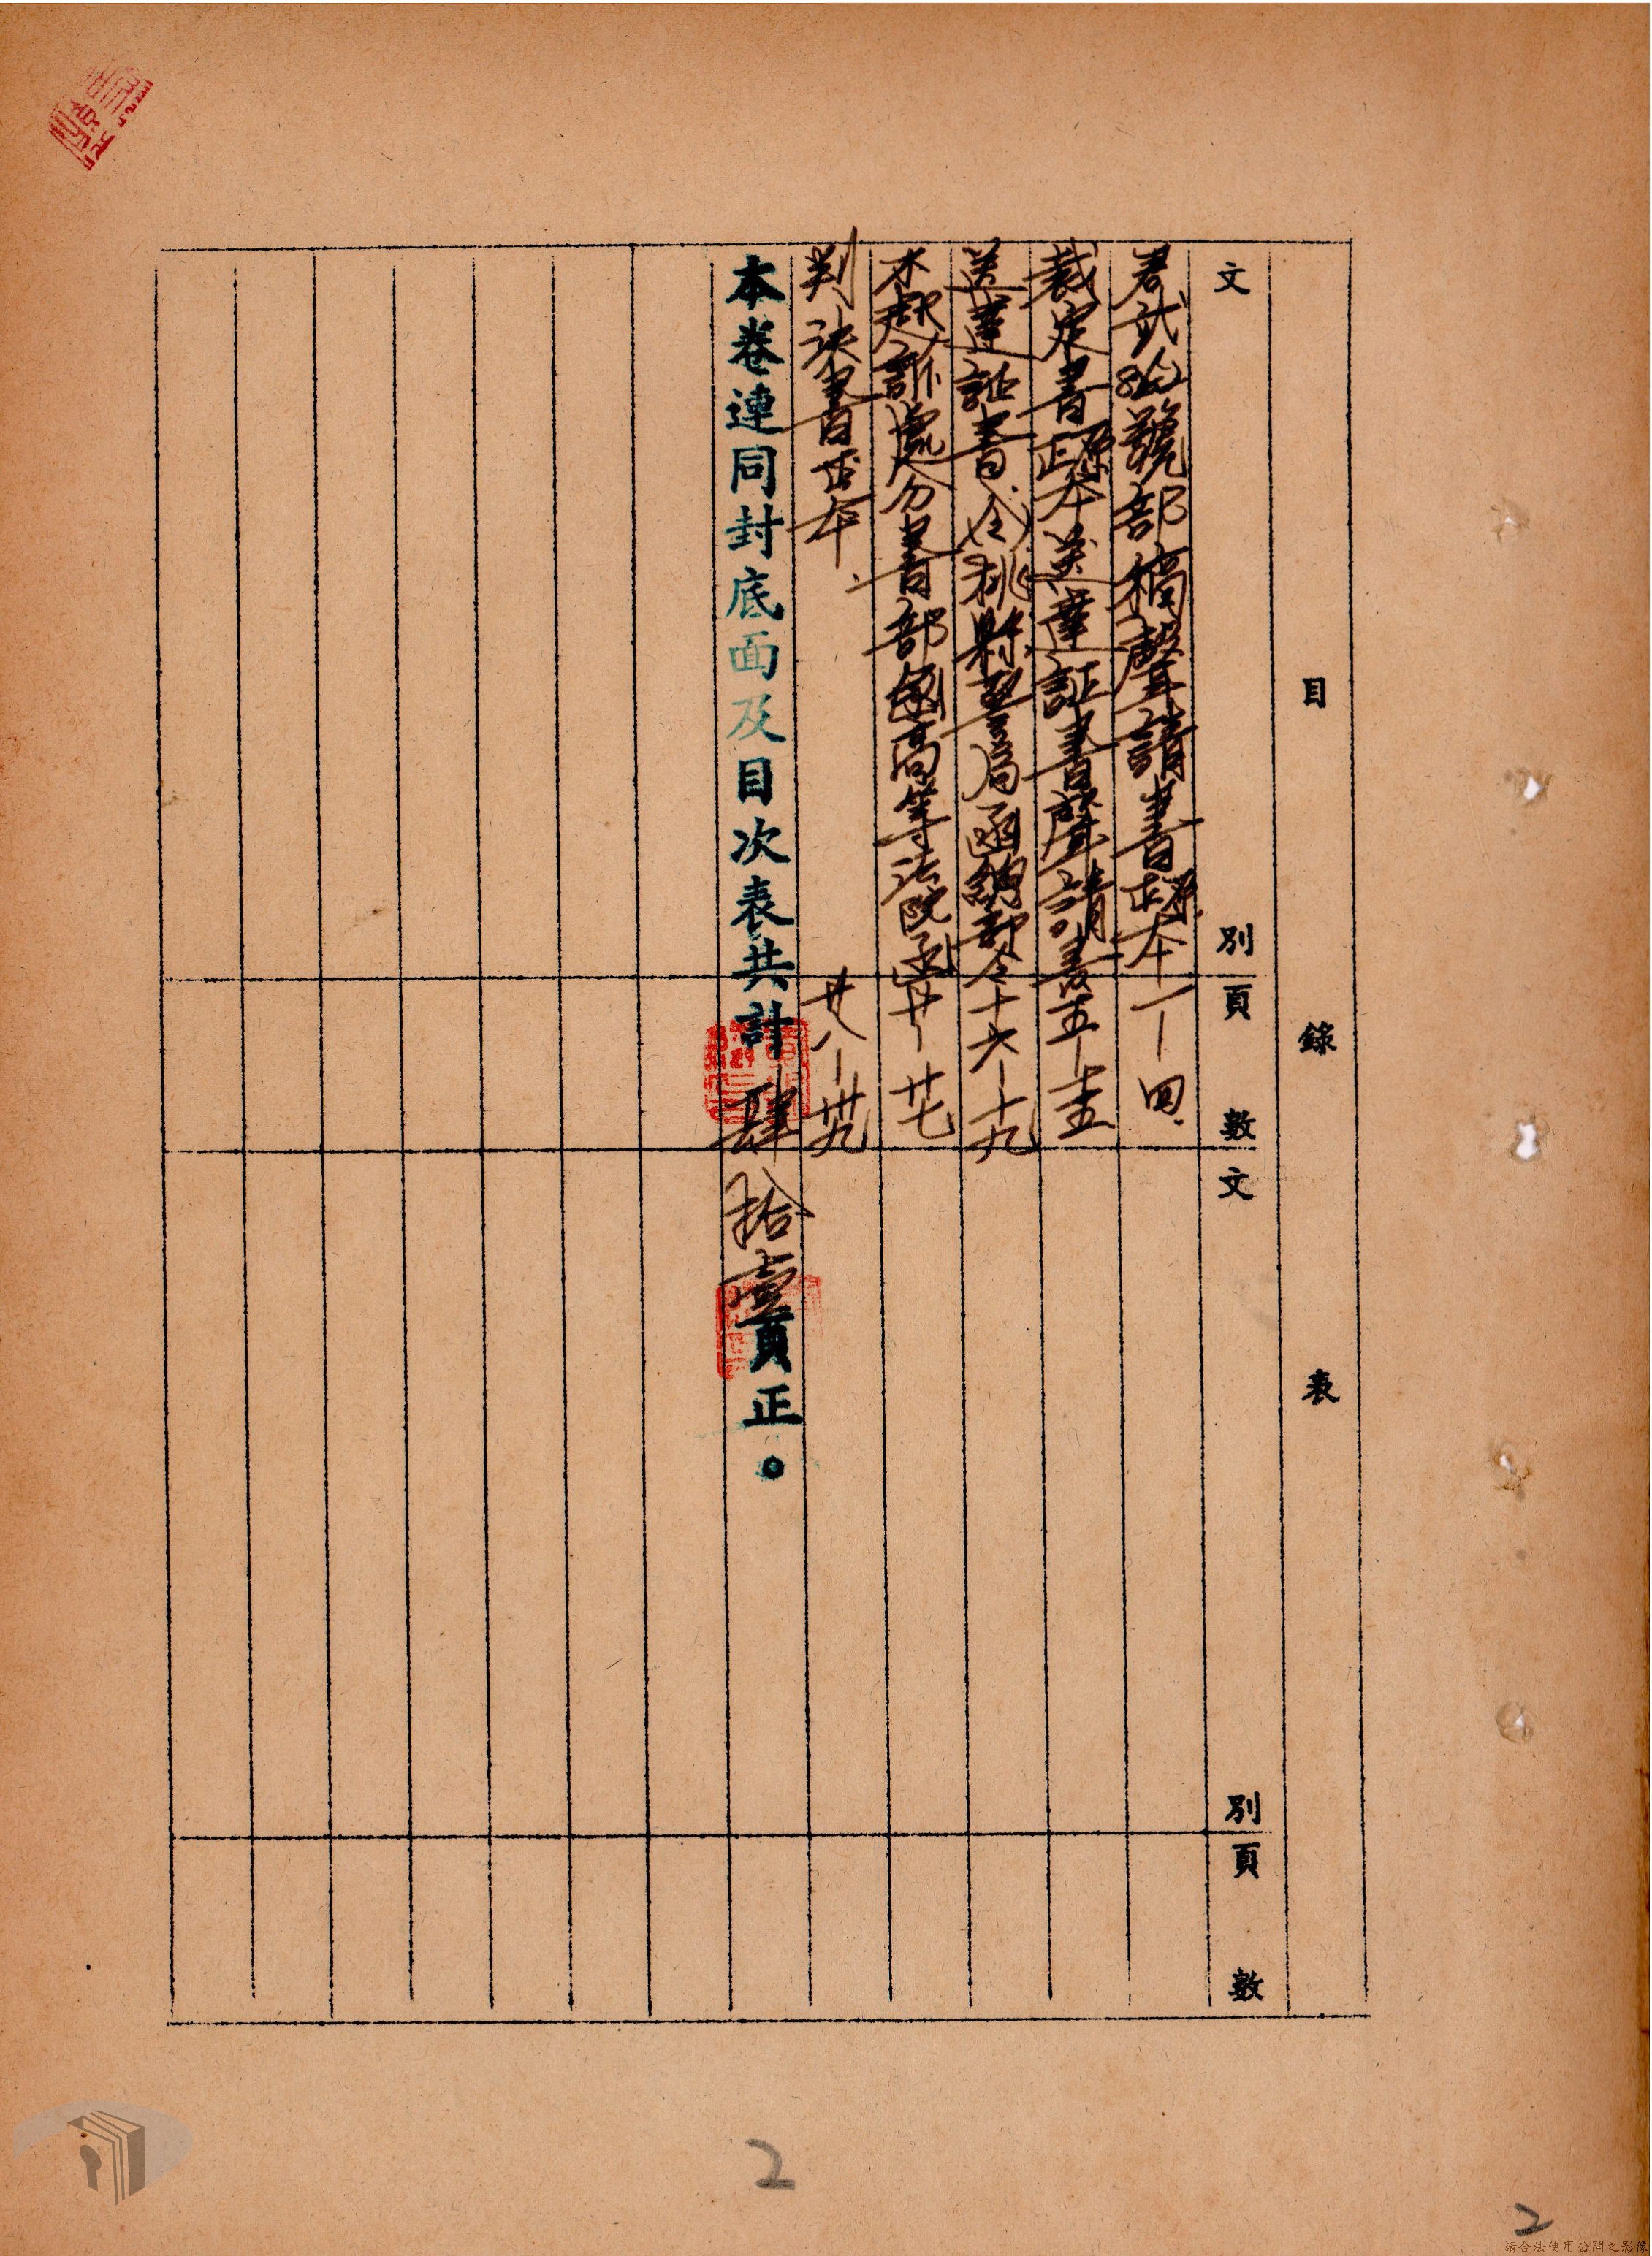 目錄表
文別頁數文別頁數
號部稿聲請書正原本一—四
裁定書正原本送達証書聲請書五—十五
送達証書令桃縣警局函綱部令十六—十九
不起訴處分書部函高等法院函廿—廿七
判決書正本廿八—卅九
本卷連同封底面及目次表共計肆拾壹頁正。
2
2
請合法使用公開之影像